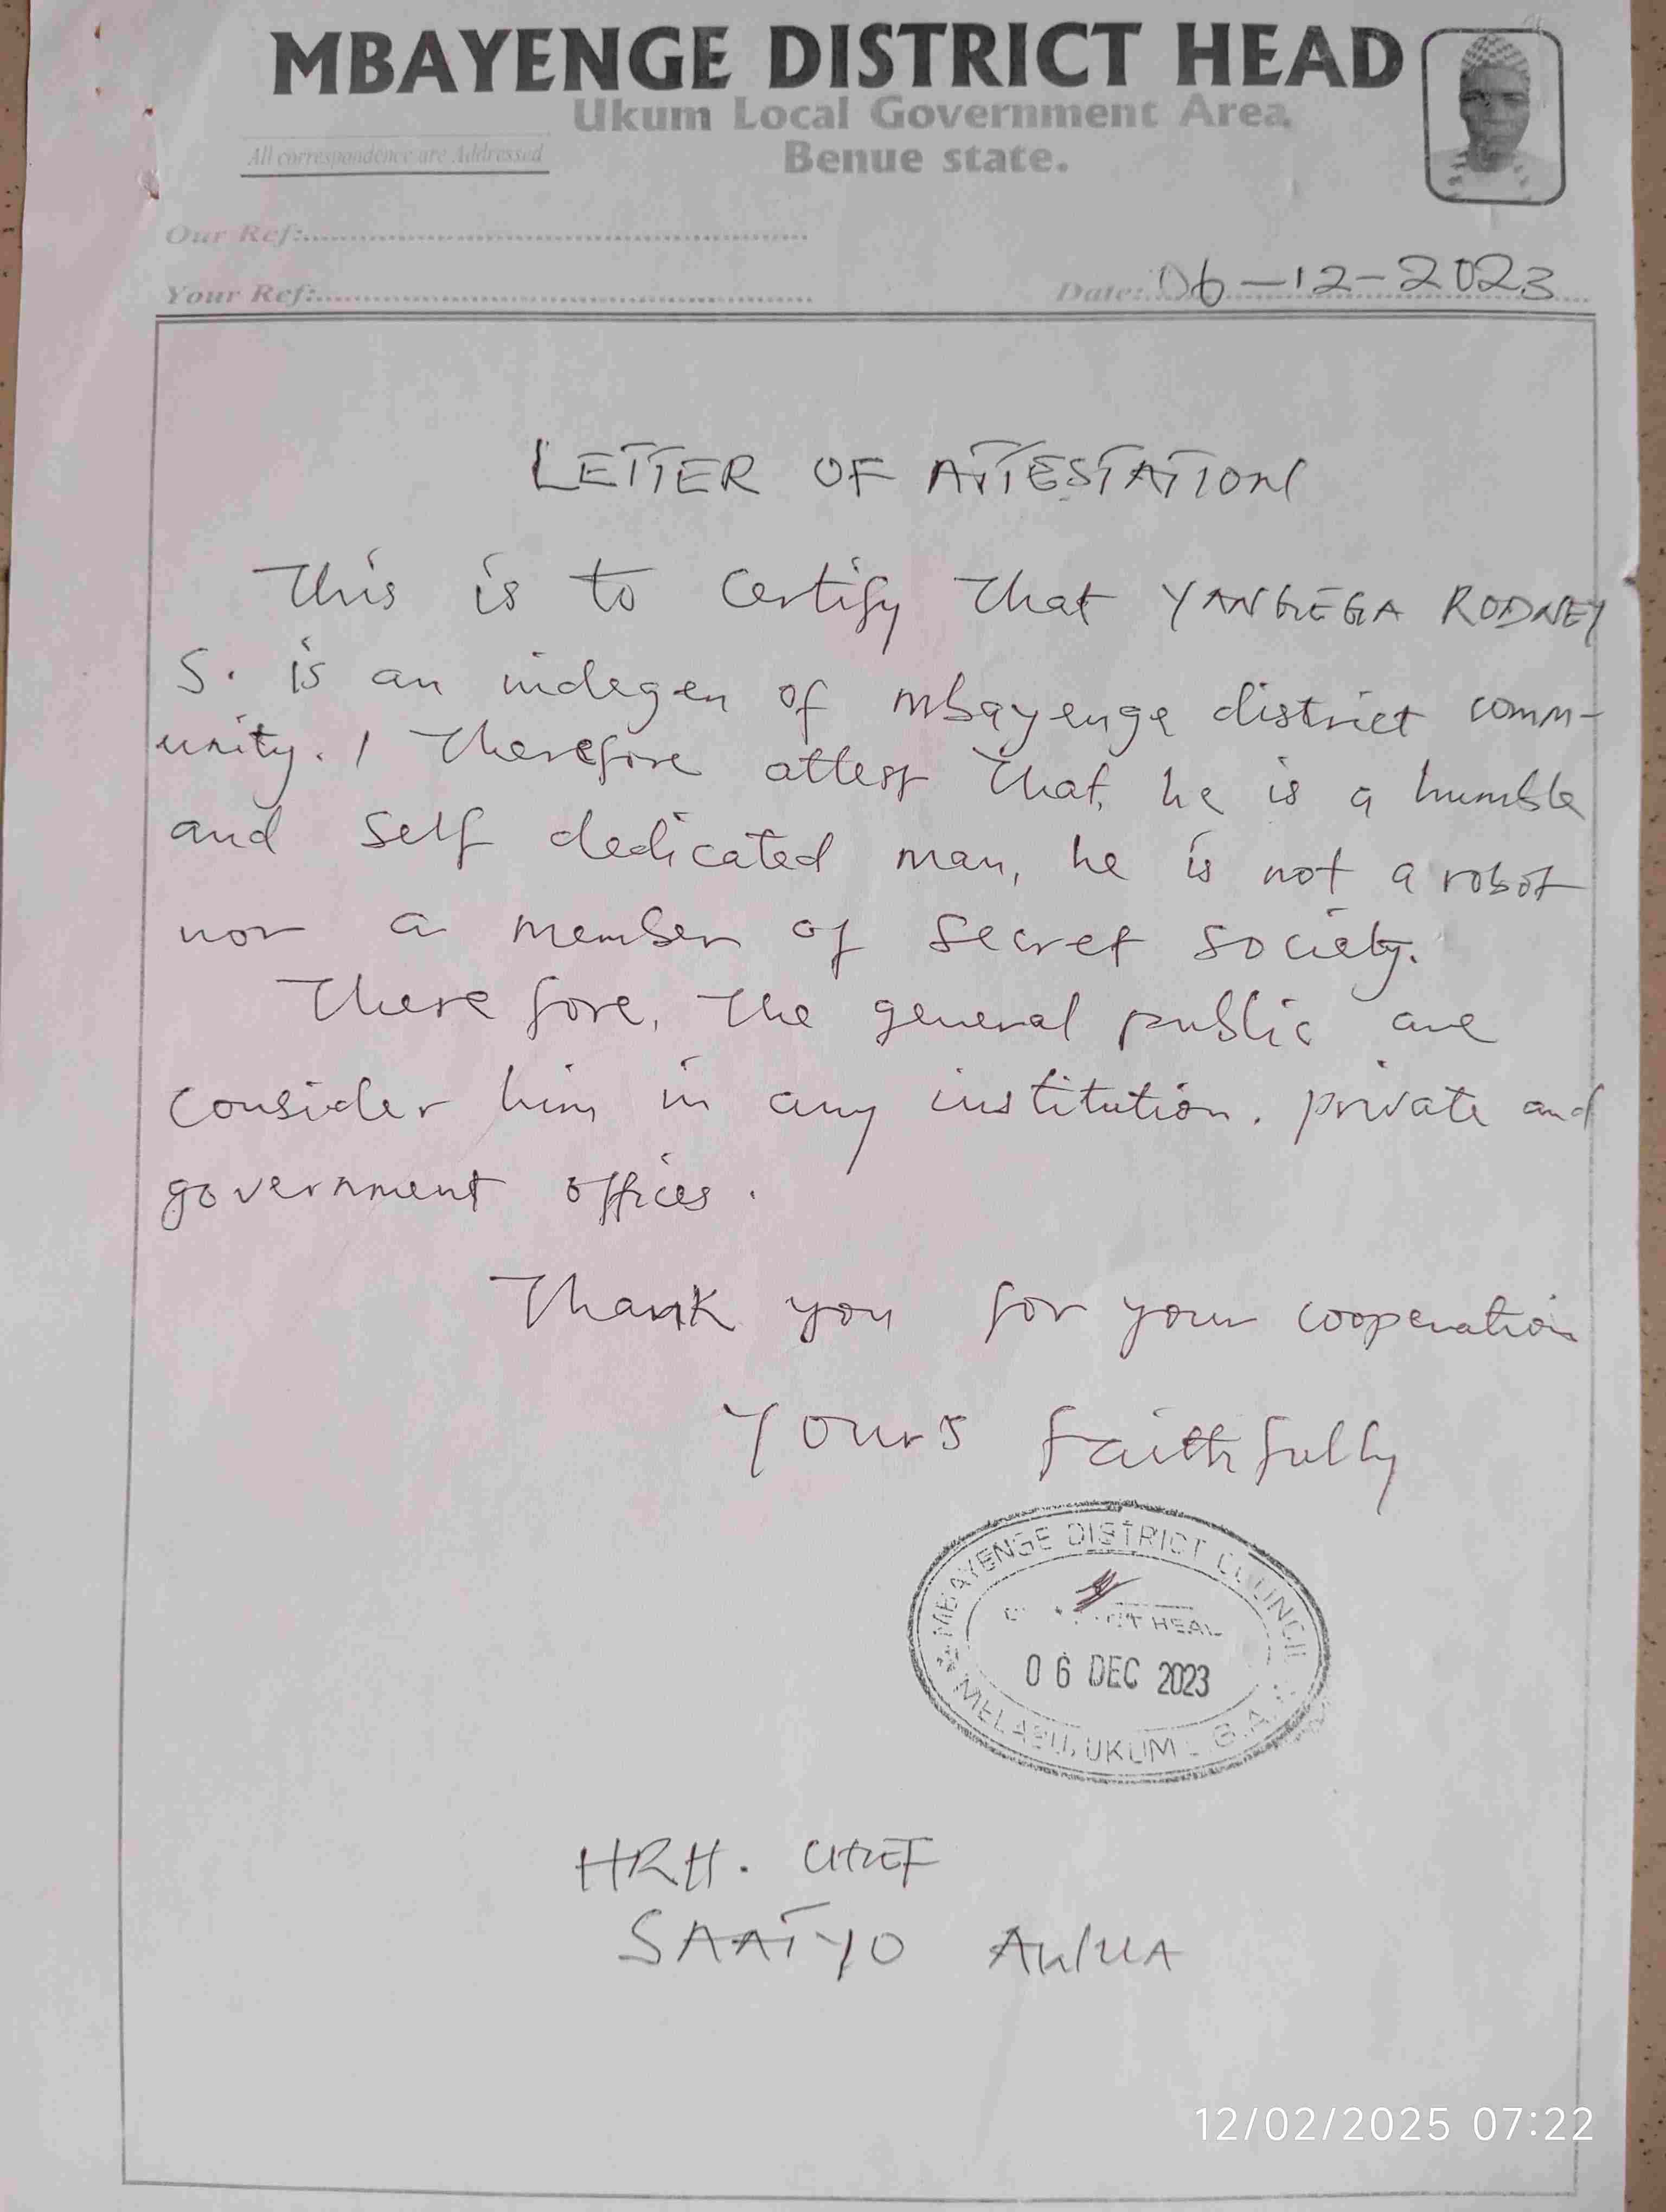 MBAYENGE DISTRICT HEAD
Ukum Local Government Area.
Benue state.
All correspondence are Addressed
Our Ref:
Your Ref:
Date: 06-12-2023
LETTER OF ATTESTATION
This is to certify that YANGEGA RODNEY
S. is an indegen of mbayenge district comm-
unity. I therefore attest that, he is a humble
and self dedicated man, he is not a robot
nor a member of secret society.
Therefore, the general public are
consider him in any institution. private and
government offices.
Thank you for your cooperation
Yours faithfully
MBAYENGE DISTRICT COUNCIL
HEAD
06 DEC 2023
UKUM L.G.A.
HRH. CHIEF
SAATYO
12/02/2025 07:22